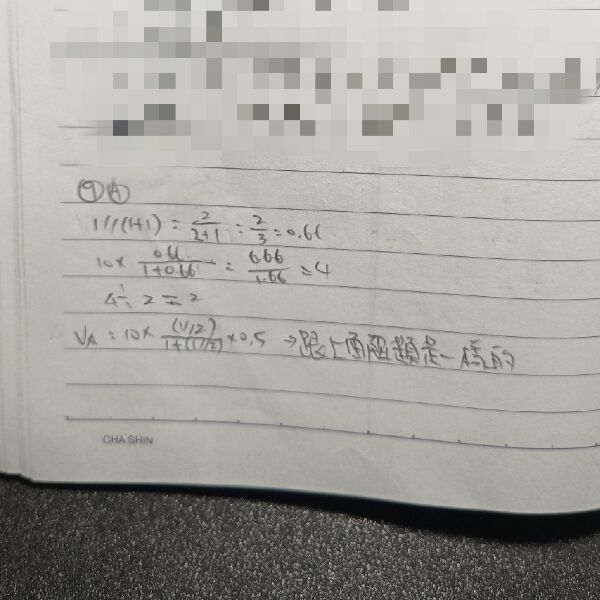 ⑨Ⓐ
1//(1+1) = 2/(2+1) = 2/3 = 0.66
10 × 0.66/(1+0.66) = 6.66/1.66 = 4
4 ÷ 2 = 2
VA = 10 × (1//2)/(1+(1//2)) × 0.5 → 跟上面題是一樣的
CHA SHIN